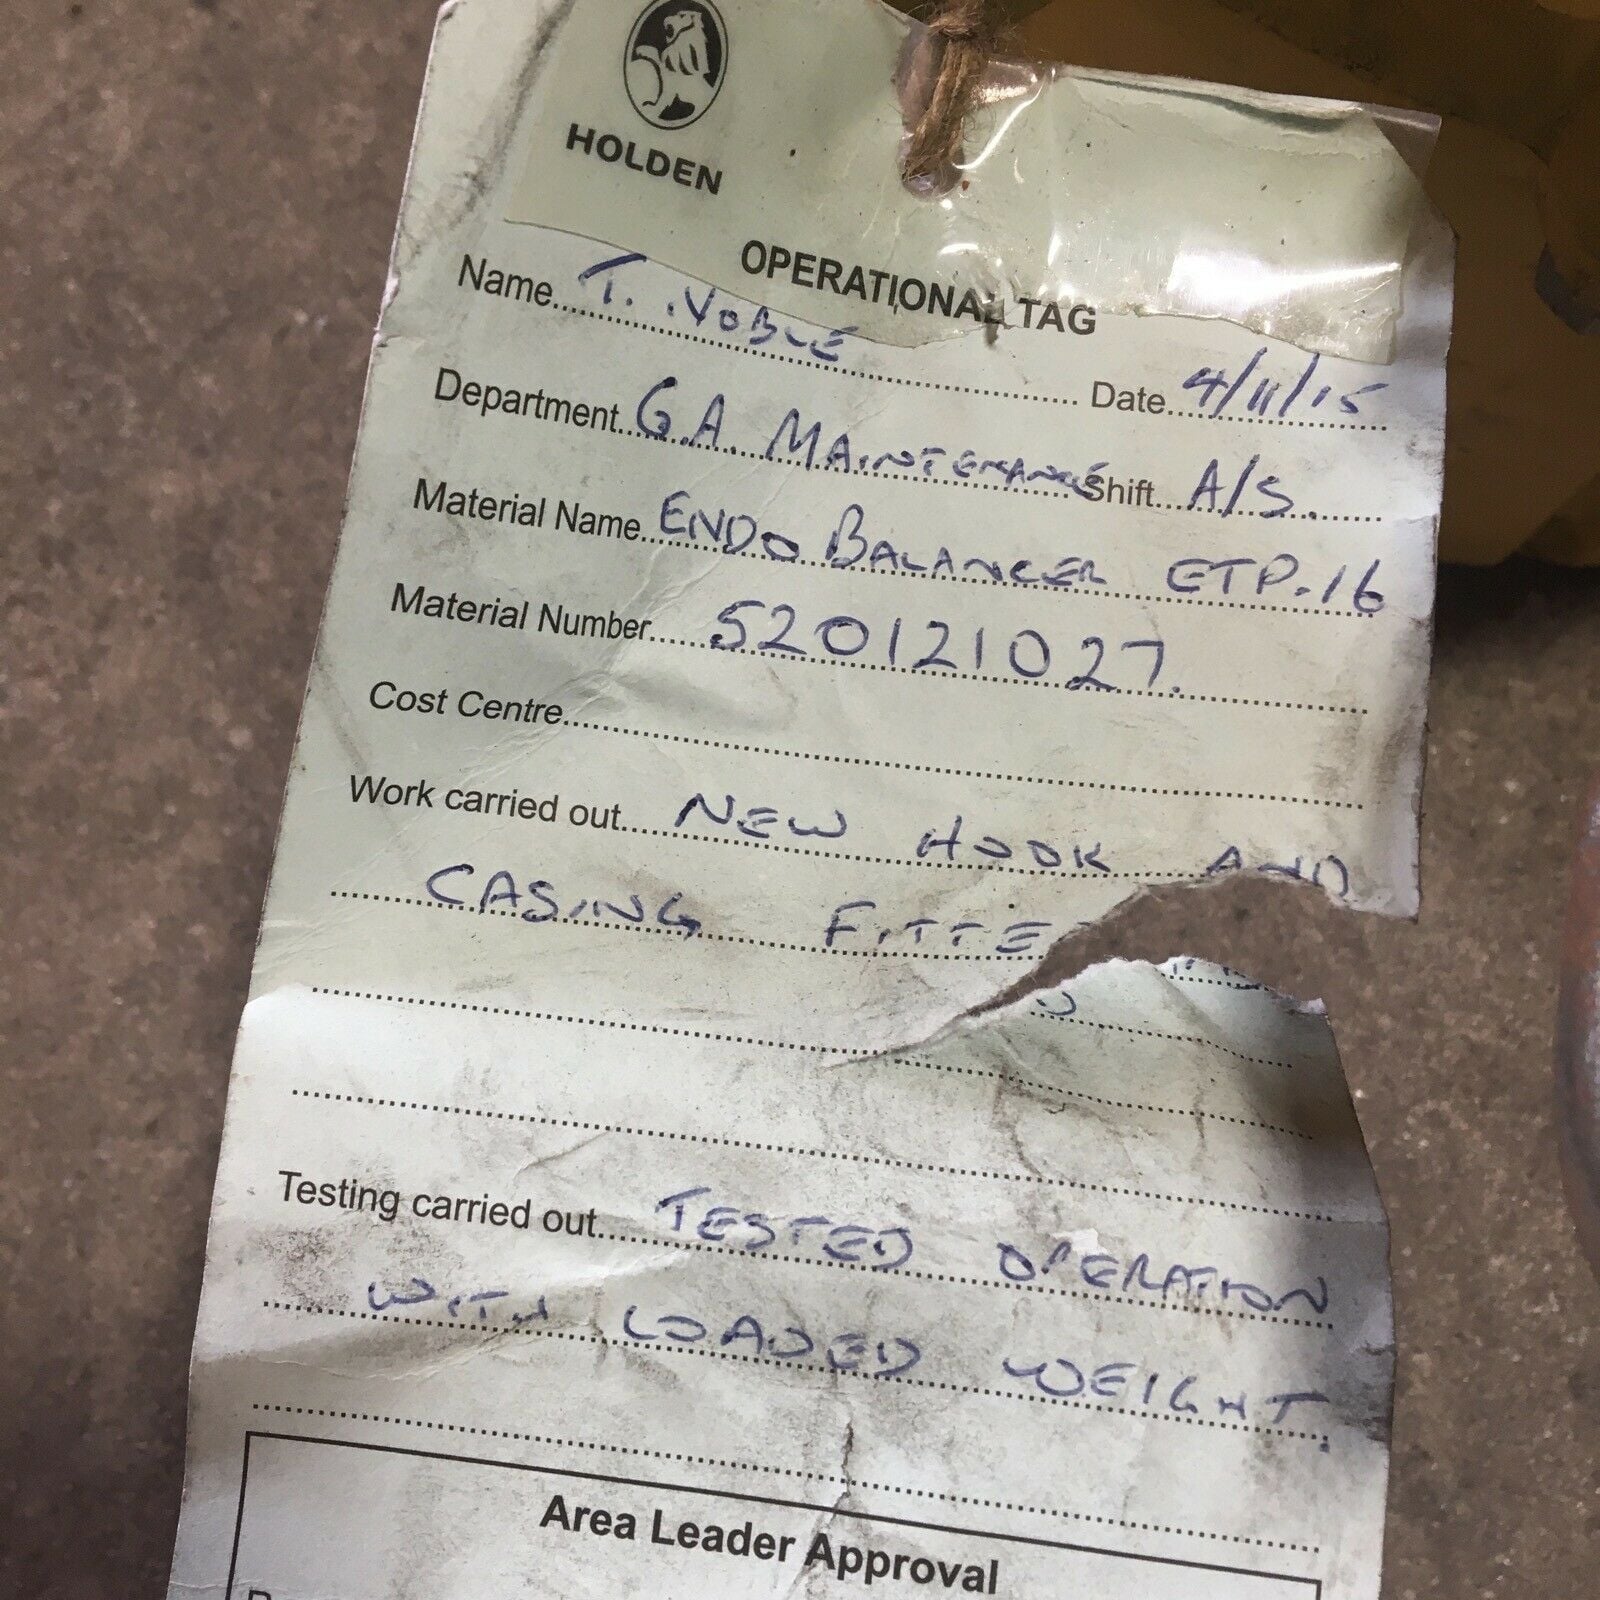 HOLDEN
OPERATIONAL TAG
Name T. NOBLE Date 4/11/15
Department G.A. MAINTENANCE Shift A/S.
Material Name ENDO BALANCER ETP.16
Material Number 520121027.
Cost Centre
Work carried out NEW HOOK AND
CASING FITTE
Testing carried out TESTED OPERATION
WITH LOADED WEIGHT.
Area Leader Approval